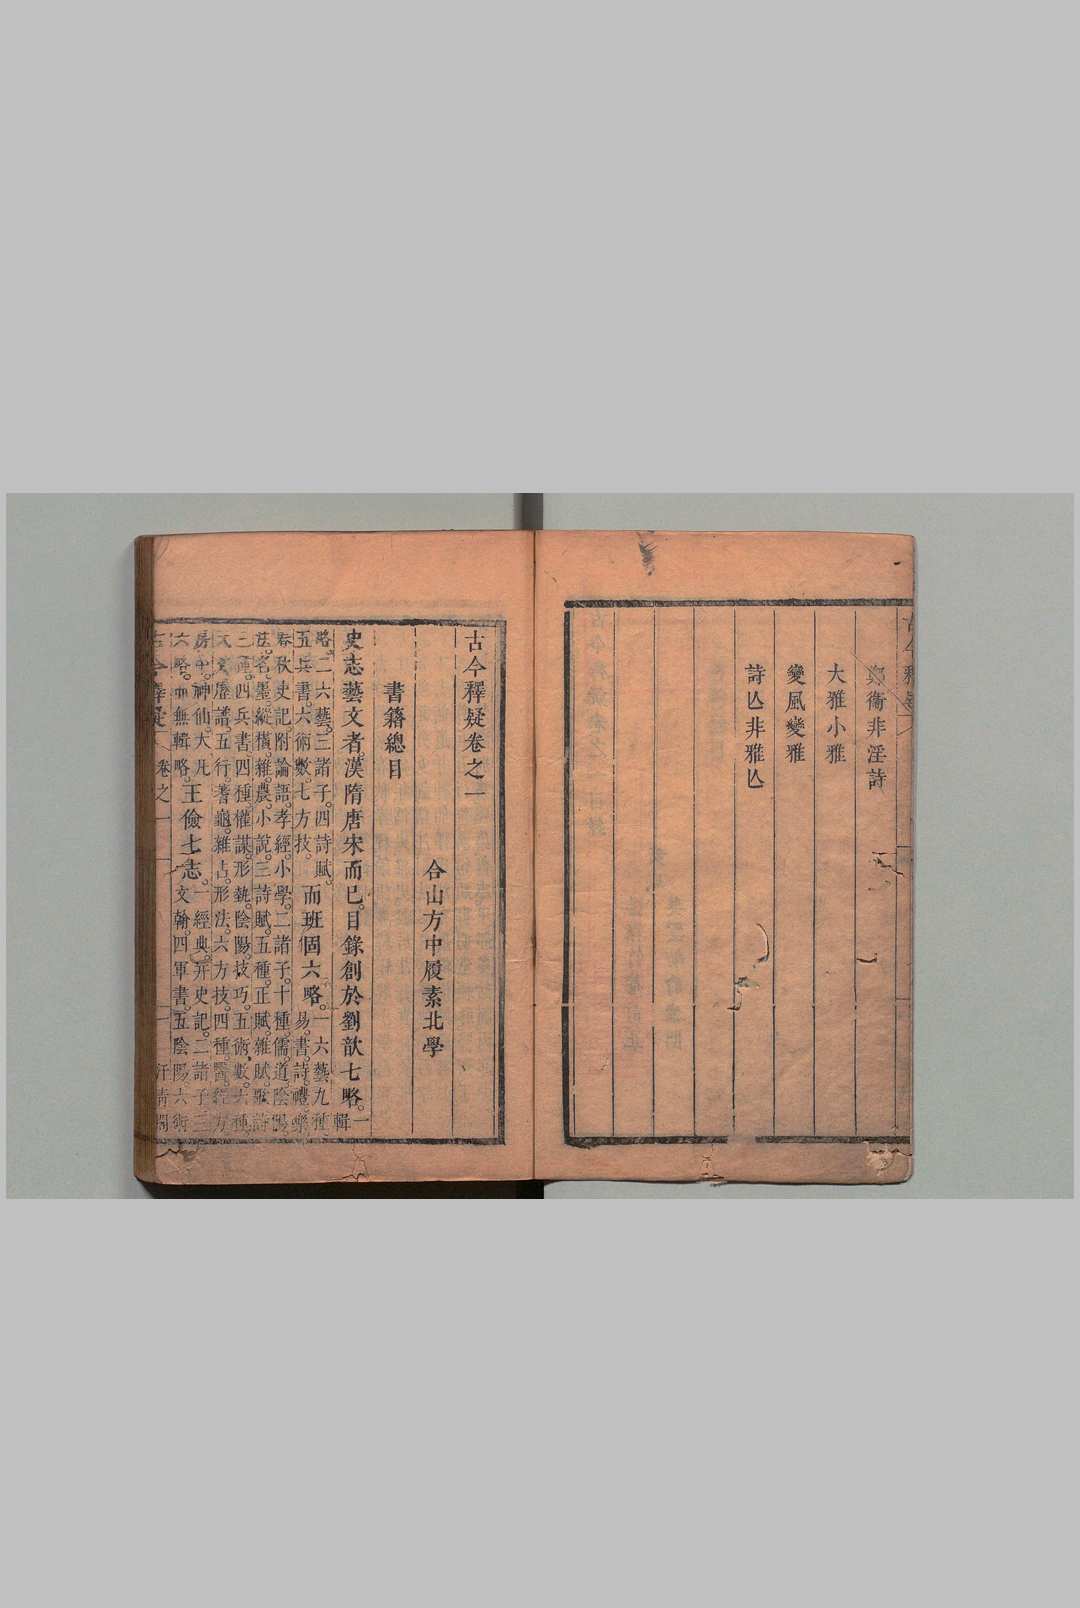 鄭衞非淫詩
大雅小雅
變風變雅
詩亾非雅亾
古今釋疑卷之一
合山方中履素北學
書籍總目
史志藝文者漢隋唐宋而已目錄創於劉歆七略一輯
略二六藝三諸子四詩賦
五兵書六術數七方技而班固六略一六藝九種
易書詩禮樂
春秋史記附論語孝經小學二諸子十種儒道陰陽
法名墨縱橫雜農小說三詩賦五種正賦雜賦歌詩
三種四兵書四種權謀形埶陰陽技巧五術數六種
天文曆譜五行蓍龜雜占形法六方技四種醫經方
房中神仙大凡
六略而無輯略王儉七志一經典并史記二諸子三
文翰四軍書五陰陽六術
古今釋疑
卷之一
一
汗青閣